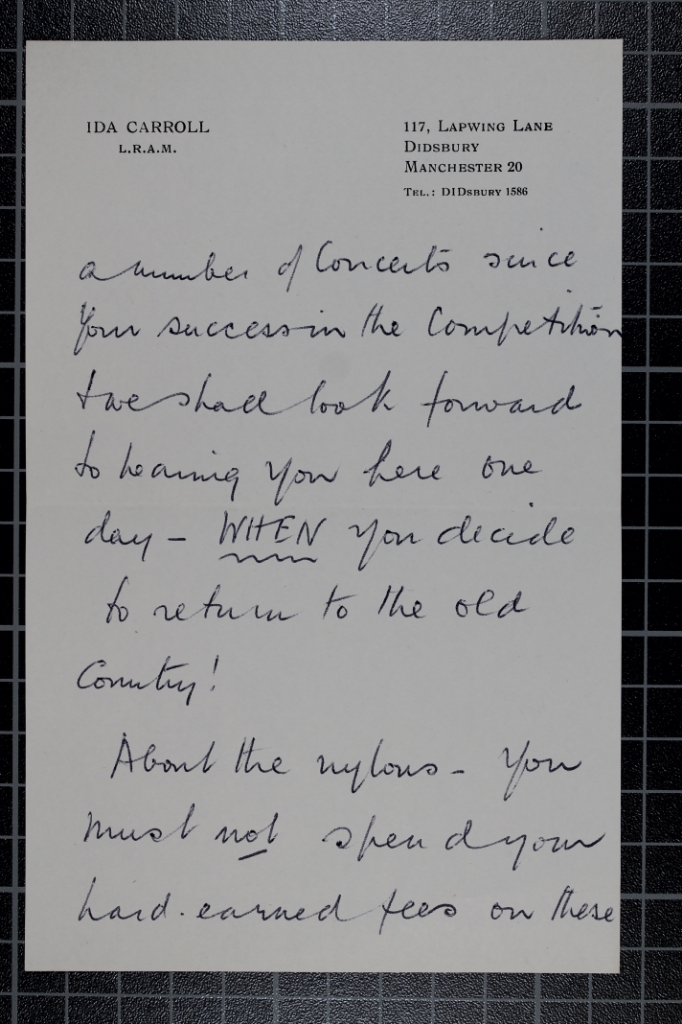 IDA CARROLL
L.R.A.M.
117, LAPWING LANE
DIDSBURY
MANCHESTER 20
TEL.: DIDSBURY 1586
a number of Concerts since
your success in the Competition
& we shall look forward
to hearing you here one
day - WHEN you decide
to return to the old
Country!
About the nylons - You
must not spend your
hard-earned fees on these